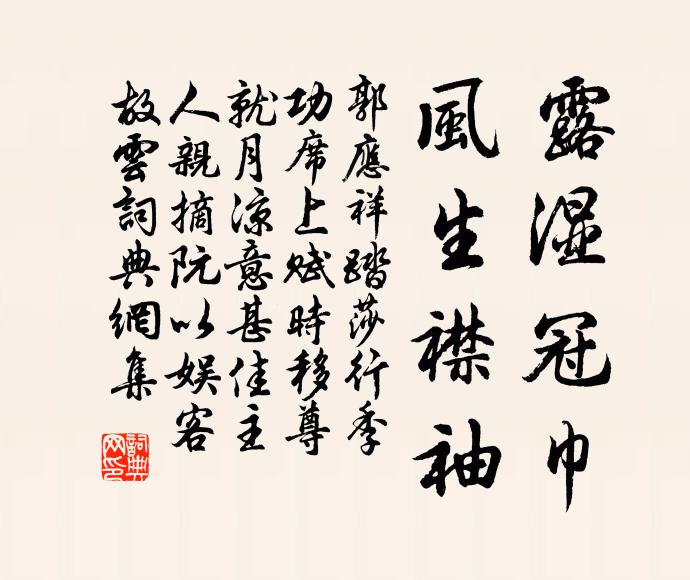 露濕冠巾
風生襟袖
郭應祥踏莎行季
功席上賦時移尊
就月涼意甚佳主
人親摘阮以娛客
故雲詞典網集
詞典
网印